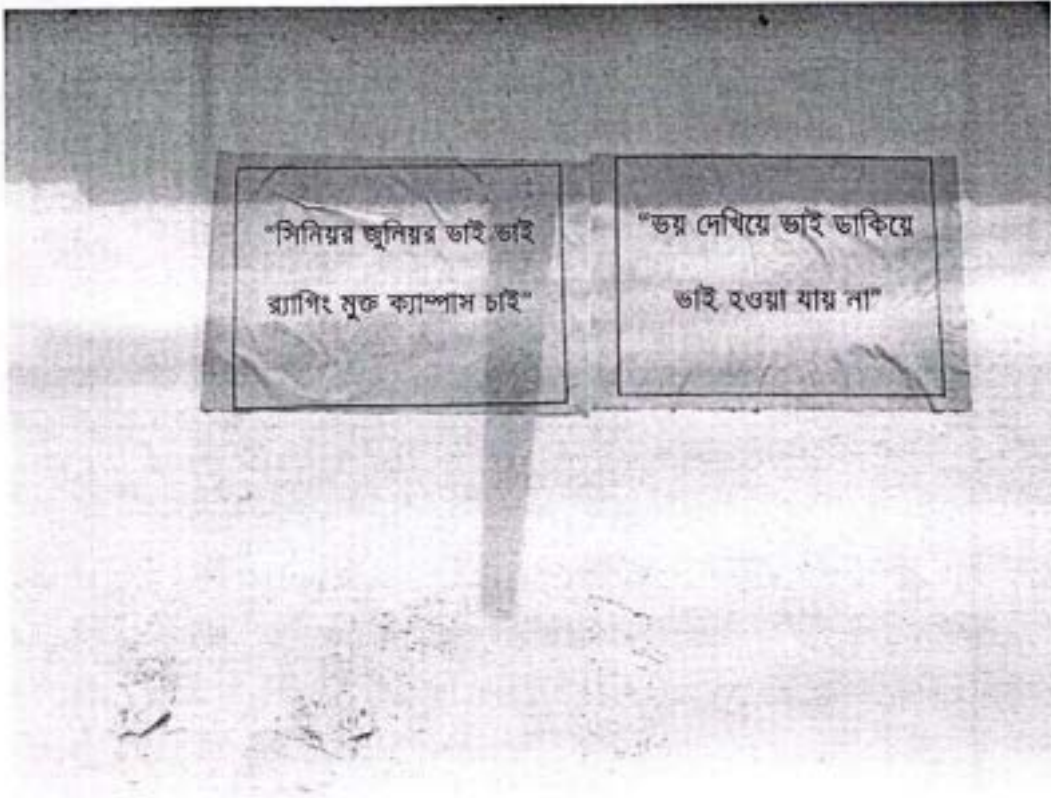 "সিনিয়র জুনিয়র ভাই ভাই
র‍্যাগিং মুক্ত ক্যাম্পাস চাই"
"ভয় দেখিয়ে ভাই ডাকিয়ে
ভাই হওয়া যায় না"